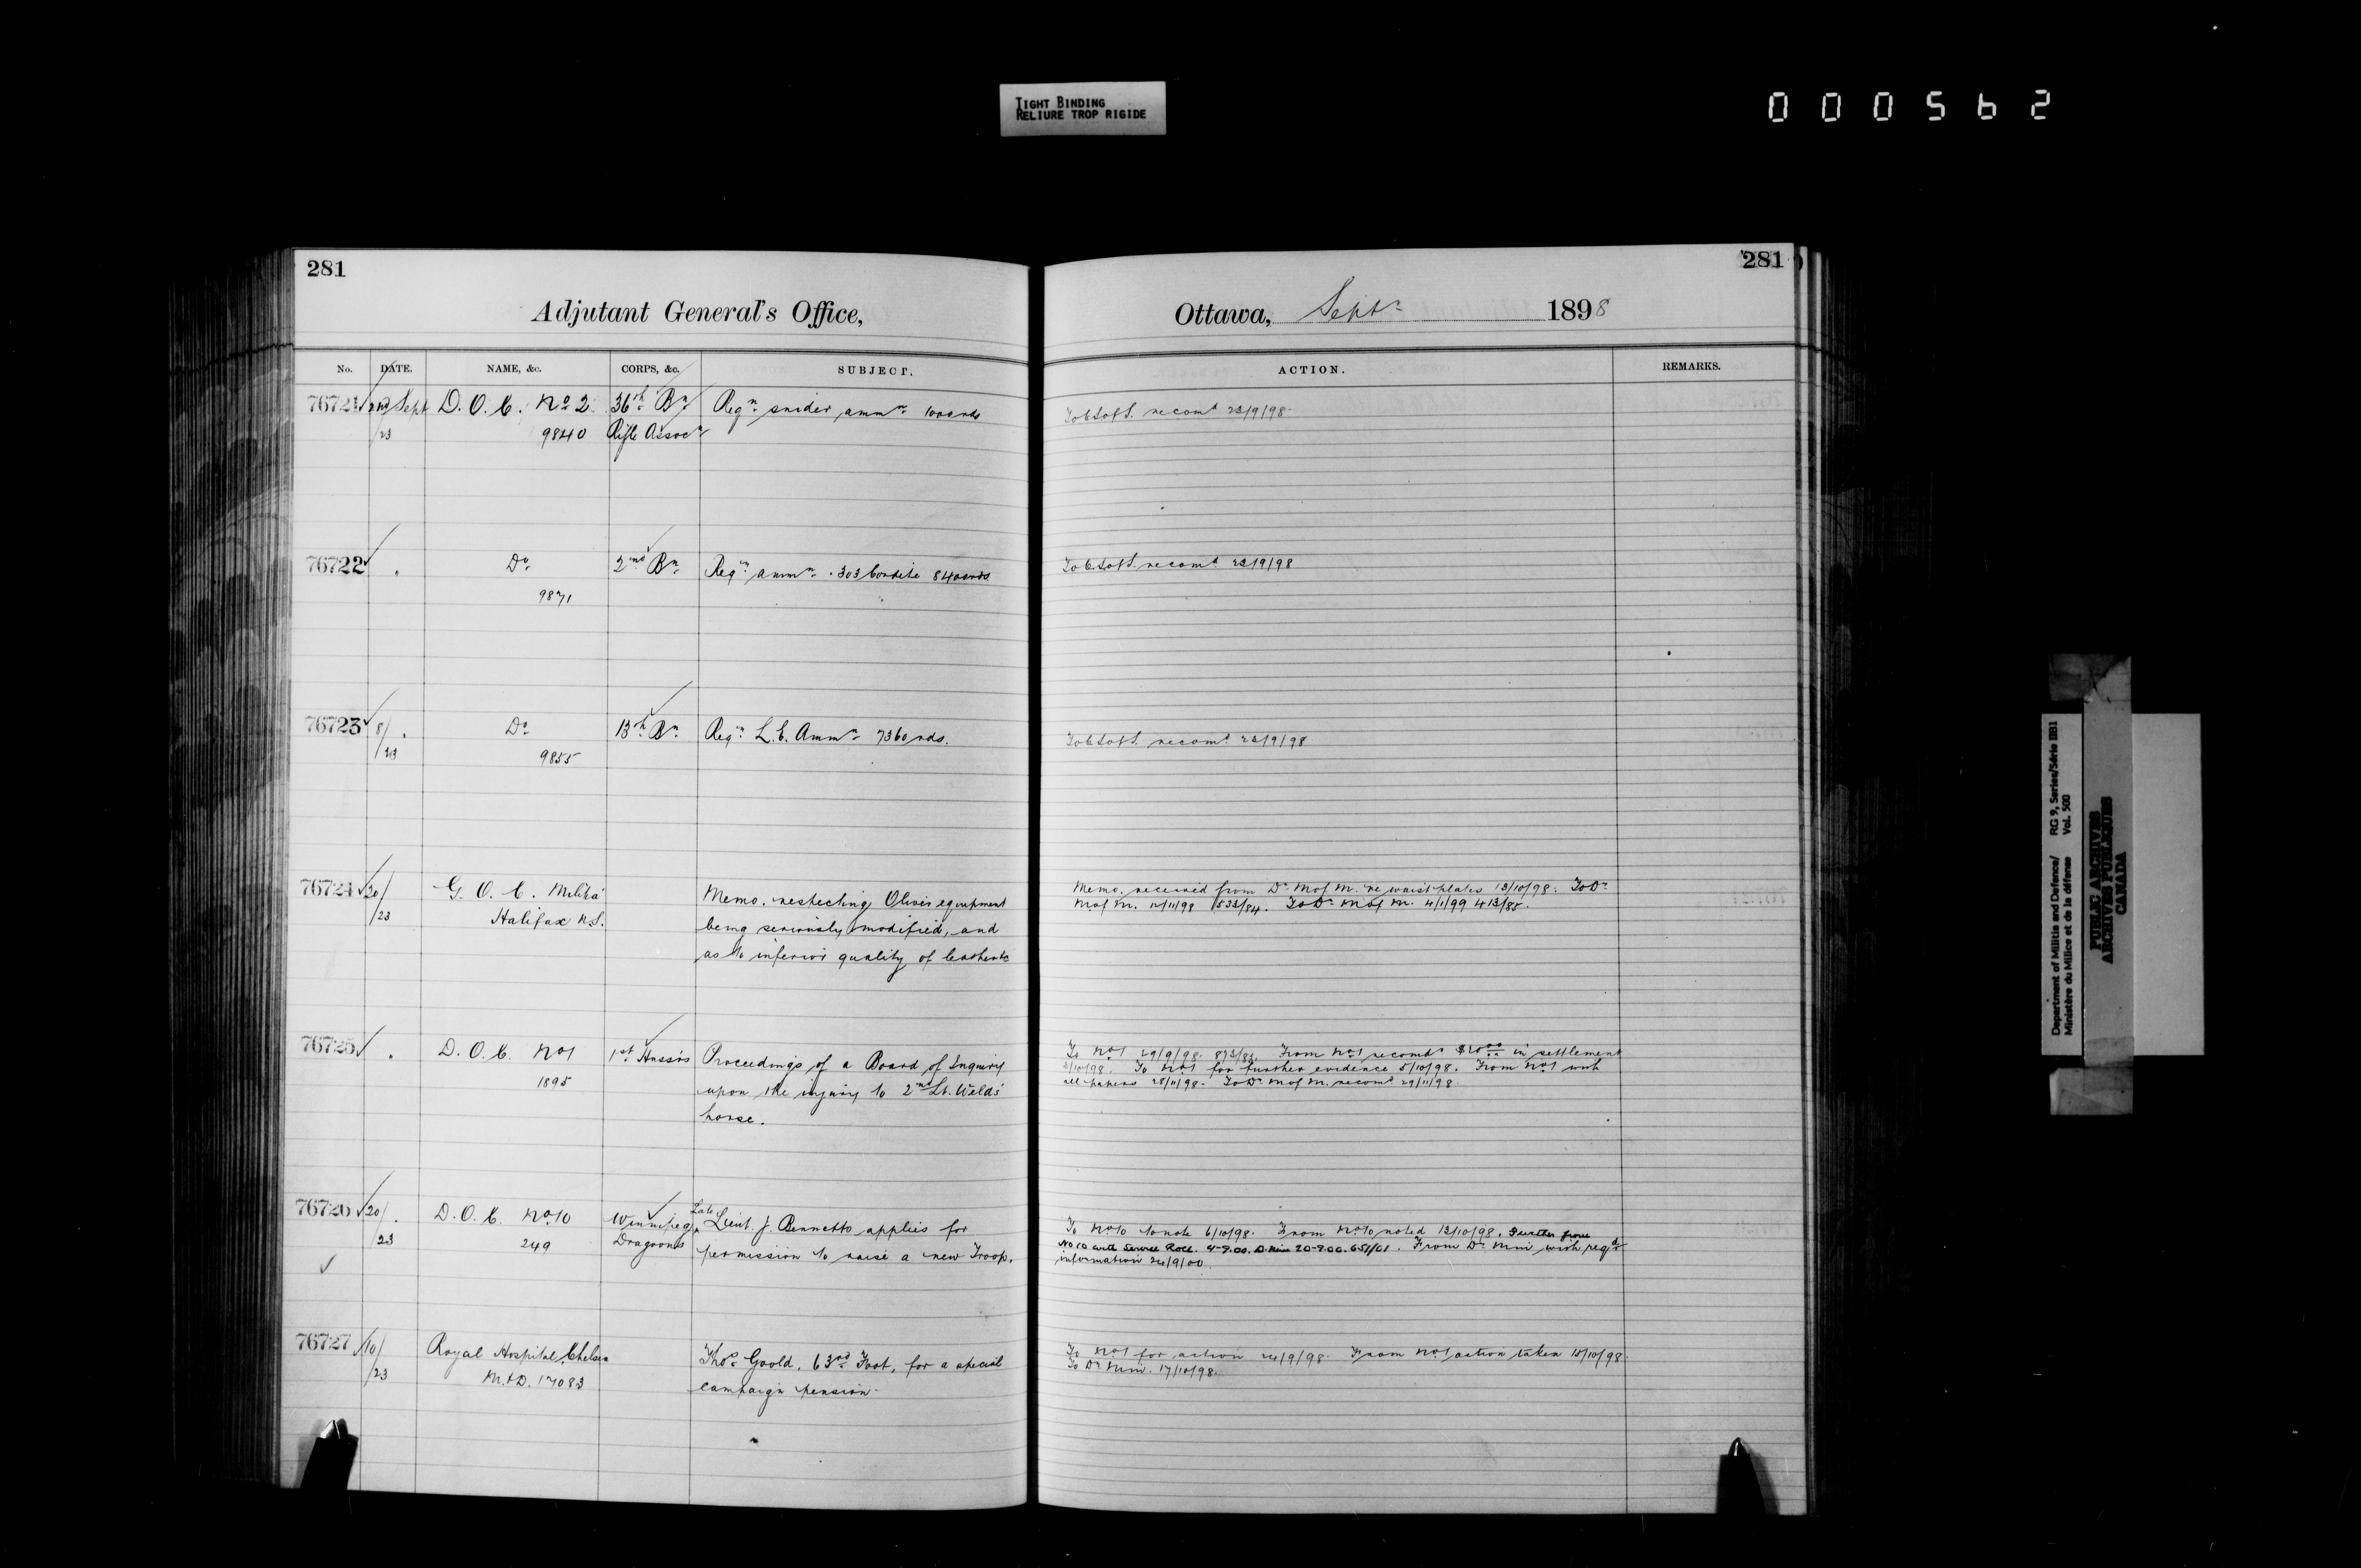 TIGHT BINDING
RELIURE TROP RIGIDE
000562
281
Adjutant General's Office,
No. DATE. NAME, &c. CORPS, &c. SUBJECT.
76721 Sept D. O. C. No 2 36th Bn Reqn snider ammn 1000 rds
/23 9840 Rifle Assocn
76722 " Do 2nd Bn Reqn ammn .303 Cordite 8400 rds
9871
76723 8/ " Do 13th Bn Reqn L.E. Ammn 7360 rds.
/23 9855
76724 20/ G. O. C. Militia Memo. respecting Oliver equipment
/23 Halifax N.S. being seriously modified, and
as to inferior quality of leather &c
76725 " D. O. C. No 1 1st Hussars Proceedings of a Board of Inquiry
1895 upon the injury to 2nd Lt. Weld's
horse.
76726 20/ " D. O. C. No 10 Winnipeg Late Lieut. J. Bennetto applies for
/23 249 Dragoons permission to raise a new Troop.
76727 10/ Royal Hospital, Chelsea Thos Goold, 63rd Foot, for a special
/23 M.&D. 17083 campaign pension.
281
Ottawa, Septr 1898
ACTION. REMARKS.
To C.S of S. recomd 23/9/98.
To C.S of S. recomd 23/9/98
To C.S of S. recomd 23/9/98
Memo. received from Dr M of M. re waist plates 13/10/98. To Dr
M of M. 12/11/98 533/84. To Dr M of M. 4/1/99 413/85.
To No 1 29/9/98. 893/83. From No 1 recomds in settlement
3/10/98. To No 1 for further evidence 5/10/98. From No 1 with
all papers 28/11/98. To Dr M of M. recomd 29/11/98.
To No 10 to note 6/10/98. From No 10 noted 13/10/98. Further from
No 10 with Service Roll. 4-9.00. D. Min 20-9.00. 651/61. From Dr Min with reqd
information 24/9/00.
To No 1 for action 24/9/98. From No 1 action taken 15/10/98.
To Dr Min. 17/10/98.
Department of Militia and Defence/ RG 9, Series/Série IIB1
Ministère du Milice et de la défense Vol. 500
PUBLIC ARCHIVES
ARCHIVES PUBLIQUES
CANADA